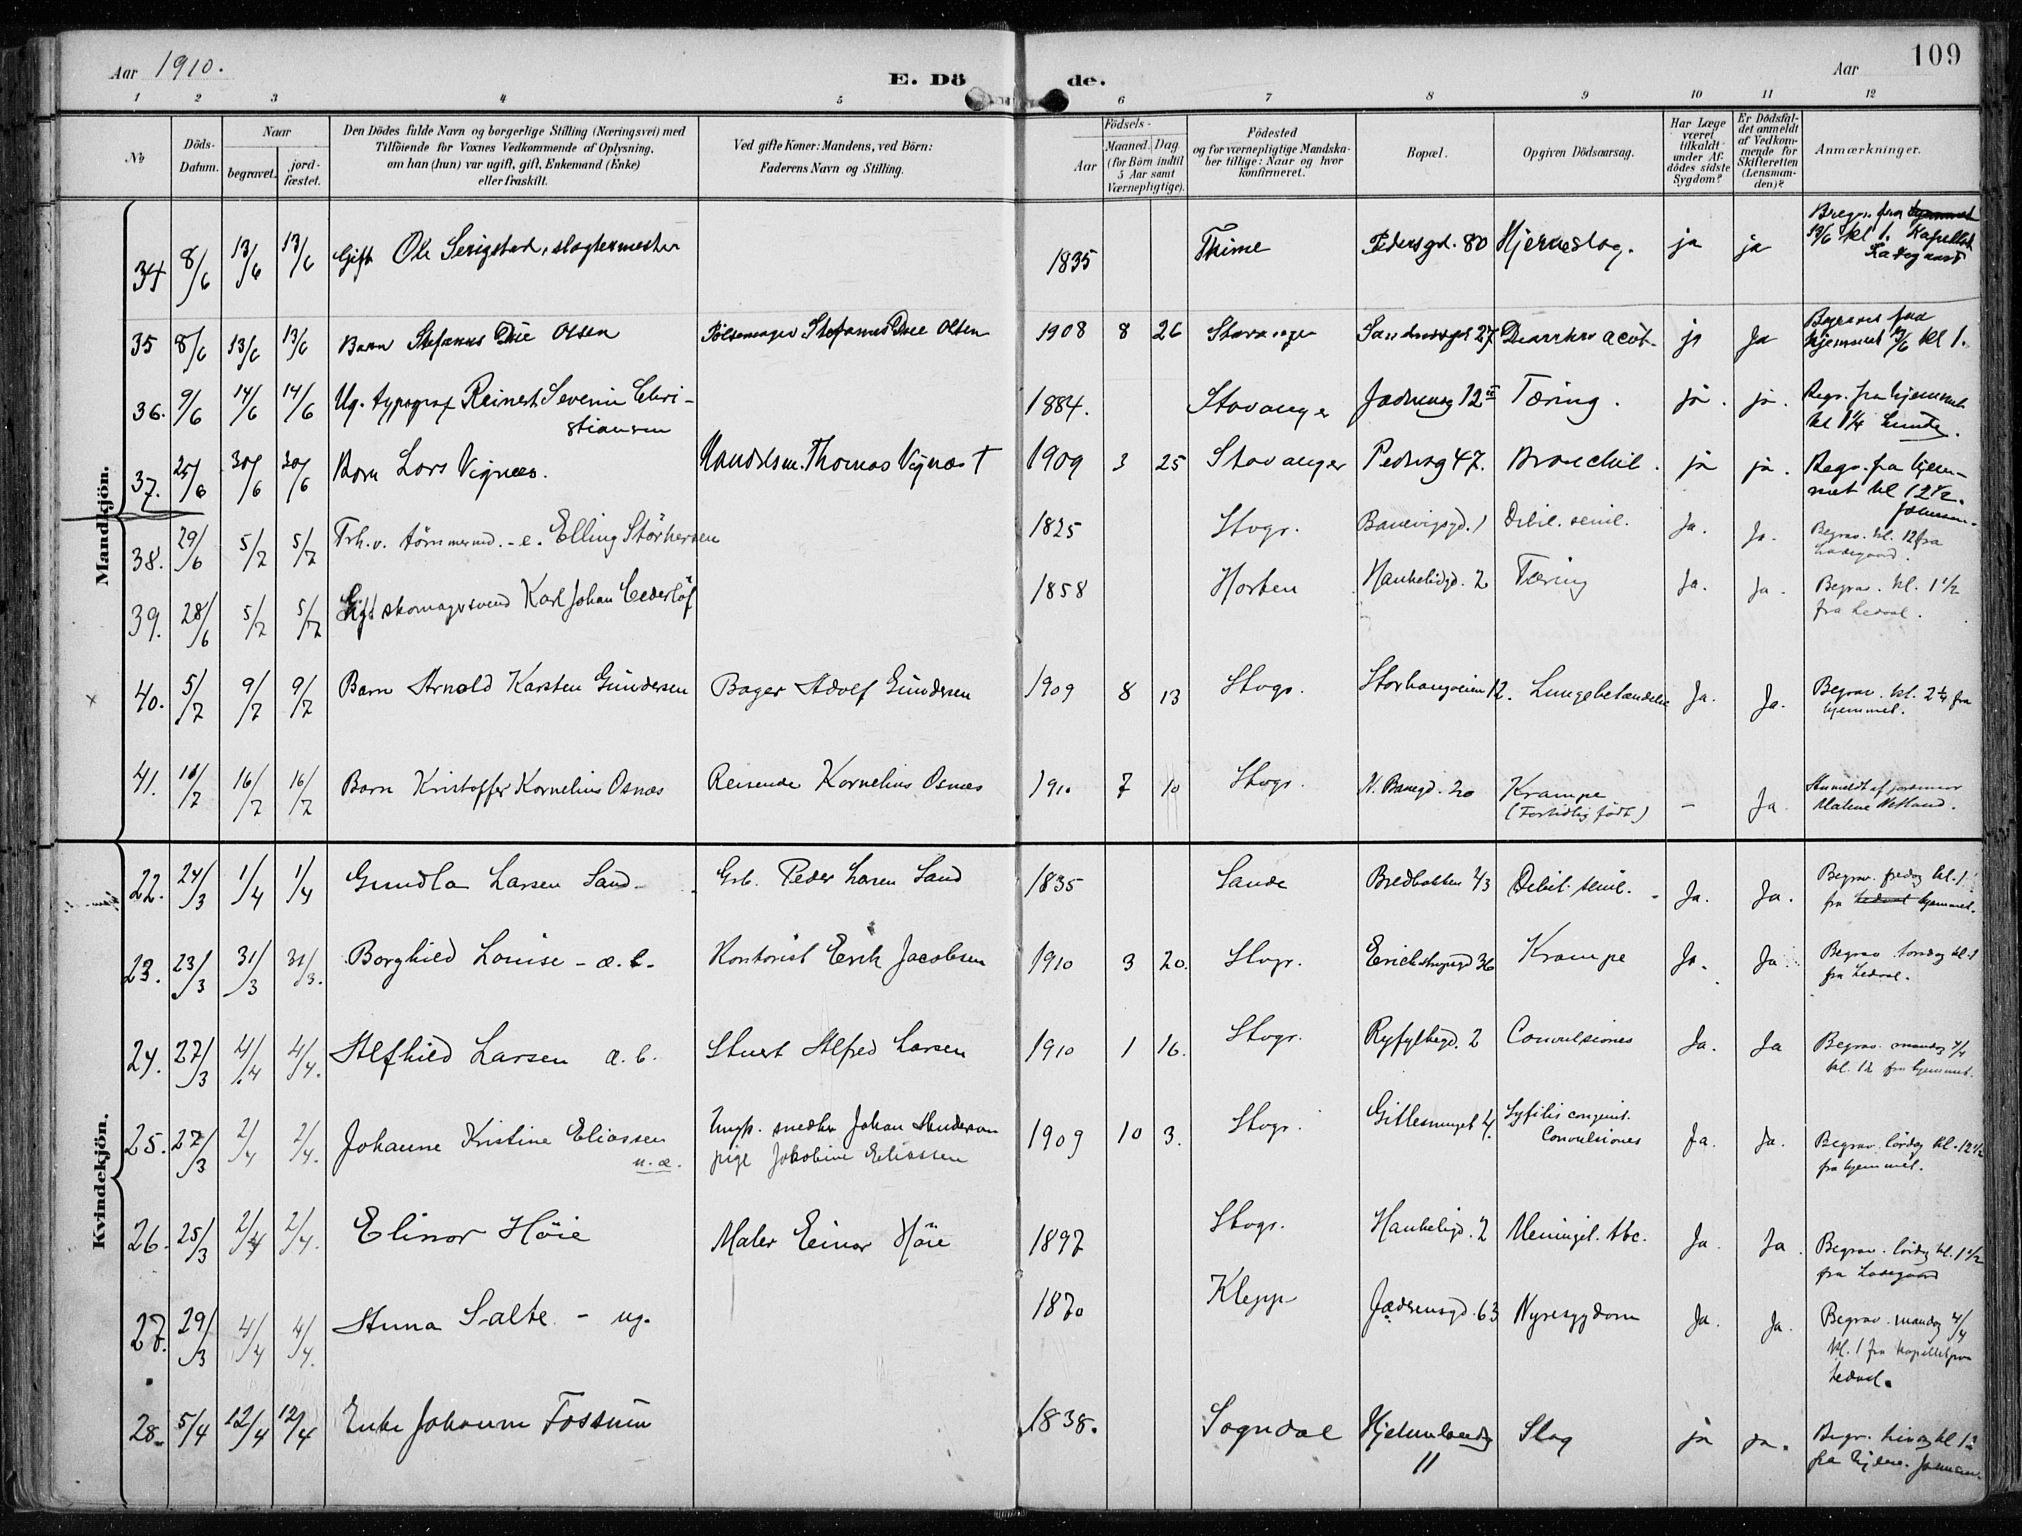 Aar 1910.
E. Dö
de.
Aar
109
1 2 3 4 5 6 7 8 9 10 11 12
No
Döds-Datum.
Naar
begravet.
jord-fæstet.
Den Dödes fulde Navn og borgerlige Stilling (Næringsvei) med
Tilföiende for Voxnes Vedkommende af Oplysning,
om han (hun) var ugift, gift, Enkemand (Enke)
eller fraskilt.
Ved gifte Koner: Mandens, ved Börn:
Faderens Navn og Stilling.
Födsels-
Aar
Maaned. Dag
(for Börn indtil
5 Aar samt
Værnepligtige).
Födested
og for værnepligtige Mandska-
ber tillige: Naar og hvor
konfirmeret.
Bopæl.
Opgiven Dödsaarsag.
Har Læge
været
tilkaldt
under Af-
dödes sidste
Sygdom?
Er Dödsfal-
det anmeldt
af Vedkom-
mende for
Skifteretten
(Lensman-
den)?
Anmærkninger.
Mandkjön.
34 8/6 13/6 13/6 Gift Ole Serigstad, slagtermester 1835 Thime Pedersgd. 80 Hjerneslag. ja ja 13/6 kl 1.
35 8/6 13/6 13/6 Barn Stefanus Olsen Stefanus Olsen 1908 8 26 Stavanger 27 ja Ja hjemmet kl 1.
36. 9/6 14/6 14/6 Ug. typograf Reinert Severin Chri-
stiansen 1884. Stavanger 12 Tæring. ja. ja. Begr. fra hjemmet
kl 1 1/4 Lunde.
37. 25/6 30/6 30/6 Barn Lars Vignæs. Thomas Vignæs † 1909 3 25 Stavanger 47. Bronchit. ja ja. Begr. fra hjem-
met kl 12 1/2.
38. 29/6 5/7 5/7 Elling 1825 Stvgr. Banevigsgd. 1 Debil. senil. Ja. Ja. Begrav. kl. 12 fra
Ladegaard.
39. 28/6 5/7 5/7 Gift skomagersvend Karl Johan Cederlöf 1858 Horten Haukeligd. 2 Tæring Ja. Ja. Begrav. kl. 1 1/2
fra Ledaal.
40. 5/7 9/7 9/7 Barn Arnold Karsten Gundersen Bager Adolf Gundersen 1909 8 13 Stvgr. Storhaugveien 12. Lungebetændelse Ja. Ja. Begrav. kl. 2 1/4 fra
hjemmet.
41. 10/7 16/7 16/7 Barn Kristoffer Kornelius Osnæs Reisende Kornelius Osnæs 1910 7 10 Stvgr. N. Banegd. 20 Krampe
(Fortidlig født) – Ja. Anmeldt af jordmor
Malene
Kvindekjön.
22. 24/3 1/4 1/4 Gundla Larsen Sand Peder Larsen Sand 1835 Sande Bredbakken 43 Debil. senil. Ja. Ja. Begrav. fredag kl. 1
fra hjemmet.
23. 23/3 31/3 31/3. Borghild Louise – æ. b. Kontorist Erik Jacobsen 1910 3 20. Stvgr. 36 Krampe Ja. Ja. Begrav. torsdag kl. 1
fra Ledaal.
24. 27/3 4/4 4/4. Alfhild Larsen æ. b. Stuert Alfred Larsen 1910 1 16. Stvgr. Ryfylkegd. 2 Convulsiones Ja. Ja Begrav. mandag 4/4
kl. 12 fra hjemmet.
25. 27/3 2/4 2/4. Johanne Kristine Eliassen
u. æ. Ungk. Johan
pige Jakobine Eliassen 1909 10 3. Stvgr. 4. Syfilis congenit.
Convulsiones Ja. Ja. Begrav. lördag kl. 12 1/2
fra hjemmet.
26. 25/3 2/4 2/4. Elinor Höie Maler Einar Höie 1897 Stvgr. Haukeligd. 2 Meningit. tbc. Ja. Ja. Begrav. lördag kl. 1 1/2
fra Ladegaard
27. 29/3 4/4 4/4. Anna Salte – ug. 1870 Klepp Jædrensgd. 63 Nyresygdom Ja. Ja. Begrav. mandag 4/4
kl. 1 fra Kapellet paa
Ledaal.
28. 5/4 12/4 12/4 Enke Johanne Fossum 1838. Sogndal 11 Slag ja ja.